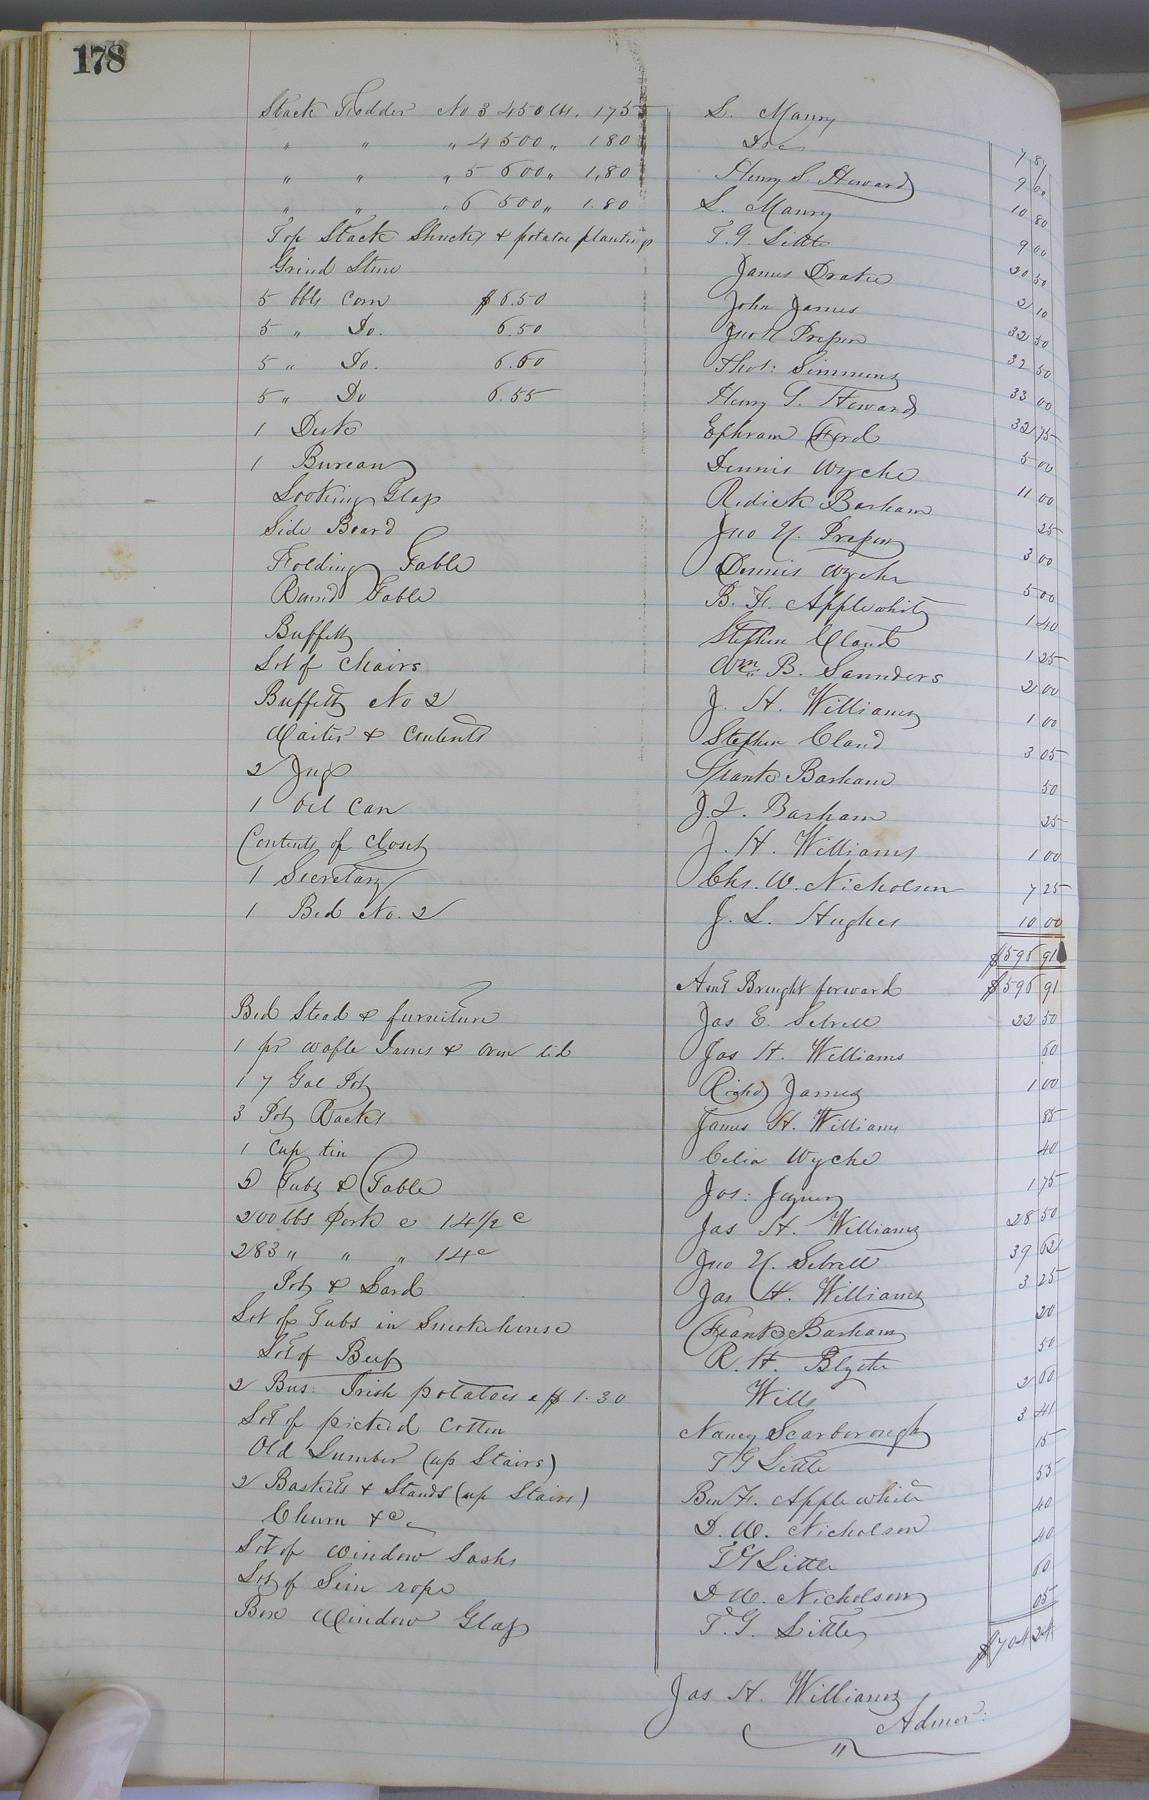 178
Stack Fodder No 3 450 lbs. 175 S. Maury 7 87
" " " 4 500 " 180 Do 9 00
" " " 5 600 " 1,80 Henry S. Howard 10 80
" " " 6 500 " 1.80 S. Maury 9 00
Top Stack Shucks & potatoe plantings T. G. Little 20 50
Grind Stone James Drake 2 10
5 bbls Corn $6.50 John James 32 50
5 " Do. 6.50 32 50
5 " Do. 6.60 Thos: Simmons 33 00
5 " Do 6.55 Henry S. Howard 32 75
1 Desk Ephram Ford 5 00
1 Bureau Dennis Wyche 11 00
Looking Glass Ridick Barham 25
Side Board Jno 3 00
Folding Table Dennis Wyche 5 00
Round Table B. F. Applewhite 1 40
Buffett Stephen Claud 1 25
Lot of Chairs Wm B. Saunders 2 00
Buffett No 2 J. H. Williams 1 00
Waiter & Contents Stephen Claud 3 05
2 Jugs Frank Barham 50
1 Oil Can J. T. Barham 25
Contents of Closet J. H. Williams 1 00
1 Secretary Chs. W. Nicholson 7 25
1 Bed No. 2 J. L. Hughes 10 00
$596 91
Amt Brought forward $596 91
Bed Stead & furniture Jas E. Sebrell 22 50
1 pr wafle Irons & oven lid Jas H. Williams 60
1 7 Gal Pot James 1 00
3 Pot Racks James H. Williams 85
1 Cup tin Celia Wyche 40
5 Tubs & Table Jos: Joyner 1 75
200 lbs Pork @ 14 1/2 c Jas H. Williams 28 50
283 " " " 14 c Jno Y. Sebrell 39 62
Pot & Lard Jas H. Williams 3 25
Lot of Tubs in Smokehouse Frank Barham 20
Lot of Beef R. H. Blythe 50
2 Bus: Irish potatoes @ $1.30 Wills 2 60
Lot of picked Cotton Nancy Scarborough 3 41
Old Lumber (up Stairs) T G Little 15
2 Baskets & Stands (up Stairs) Ben F. Applewhite 55
Churn &c D. W. Nicholson 40
Lot of window Sashs T G Little 40
Lot of Sein rope D W. Nicholson 60
Box Window Glass T. G. Little 05
$704 24
Jas H. Williams
Admor.
"